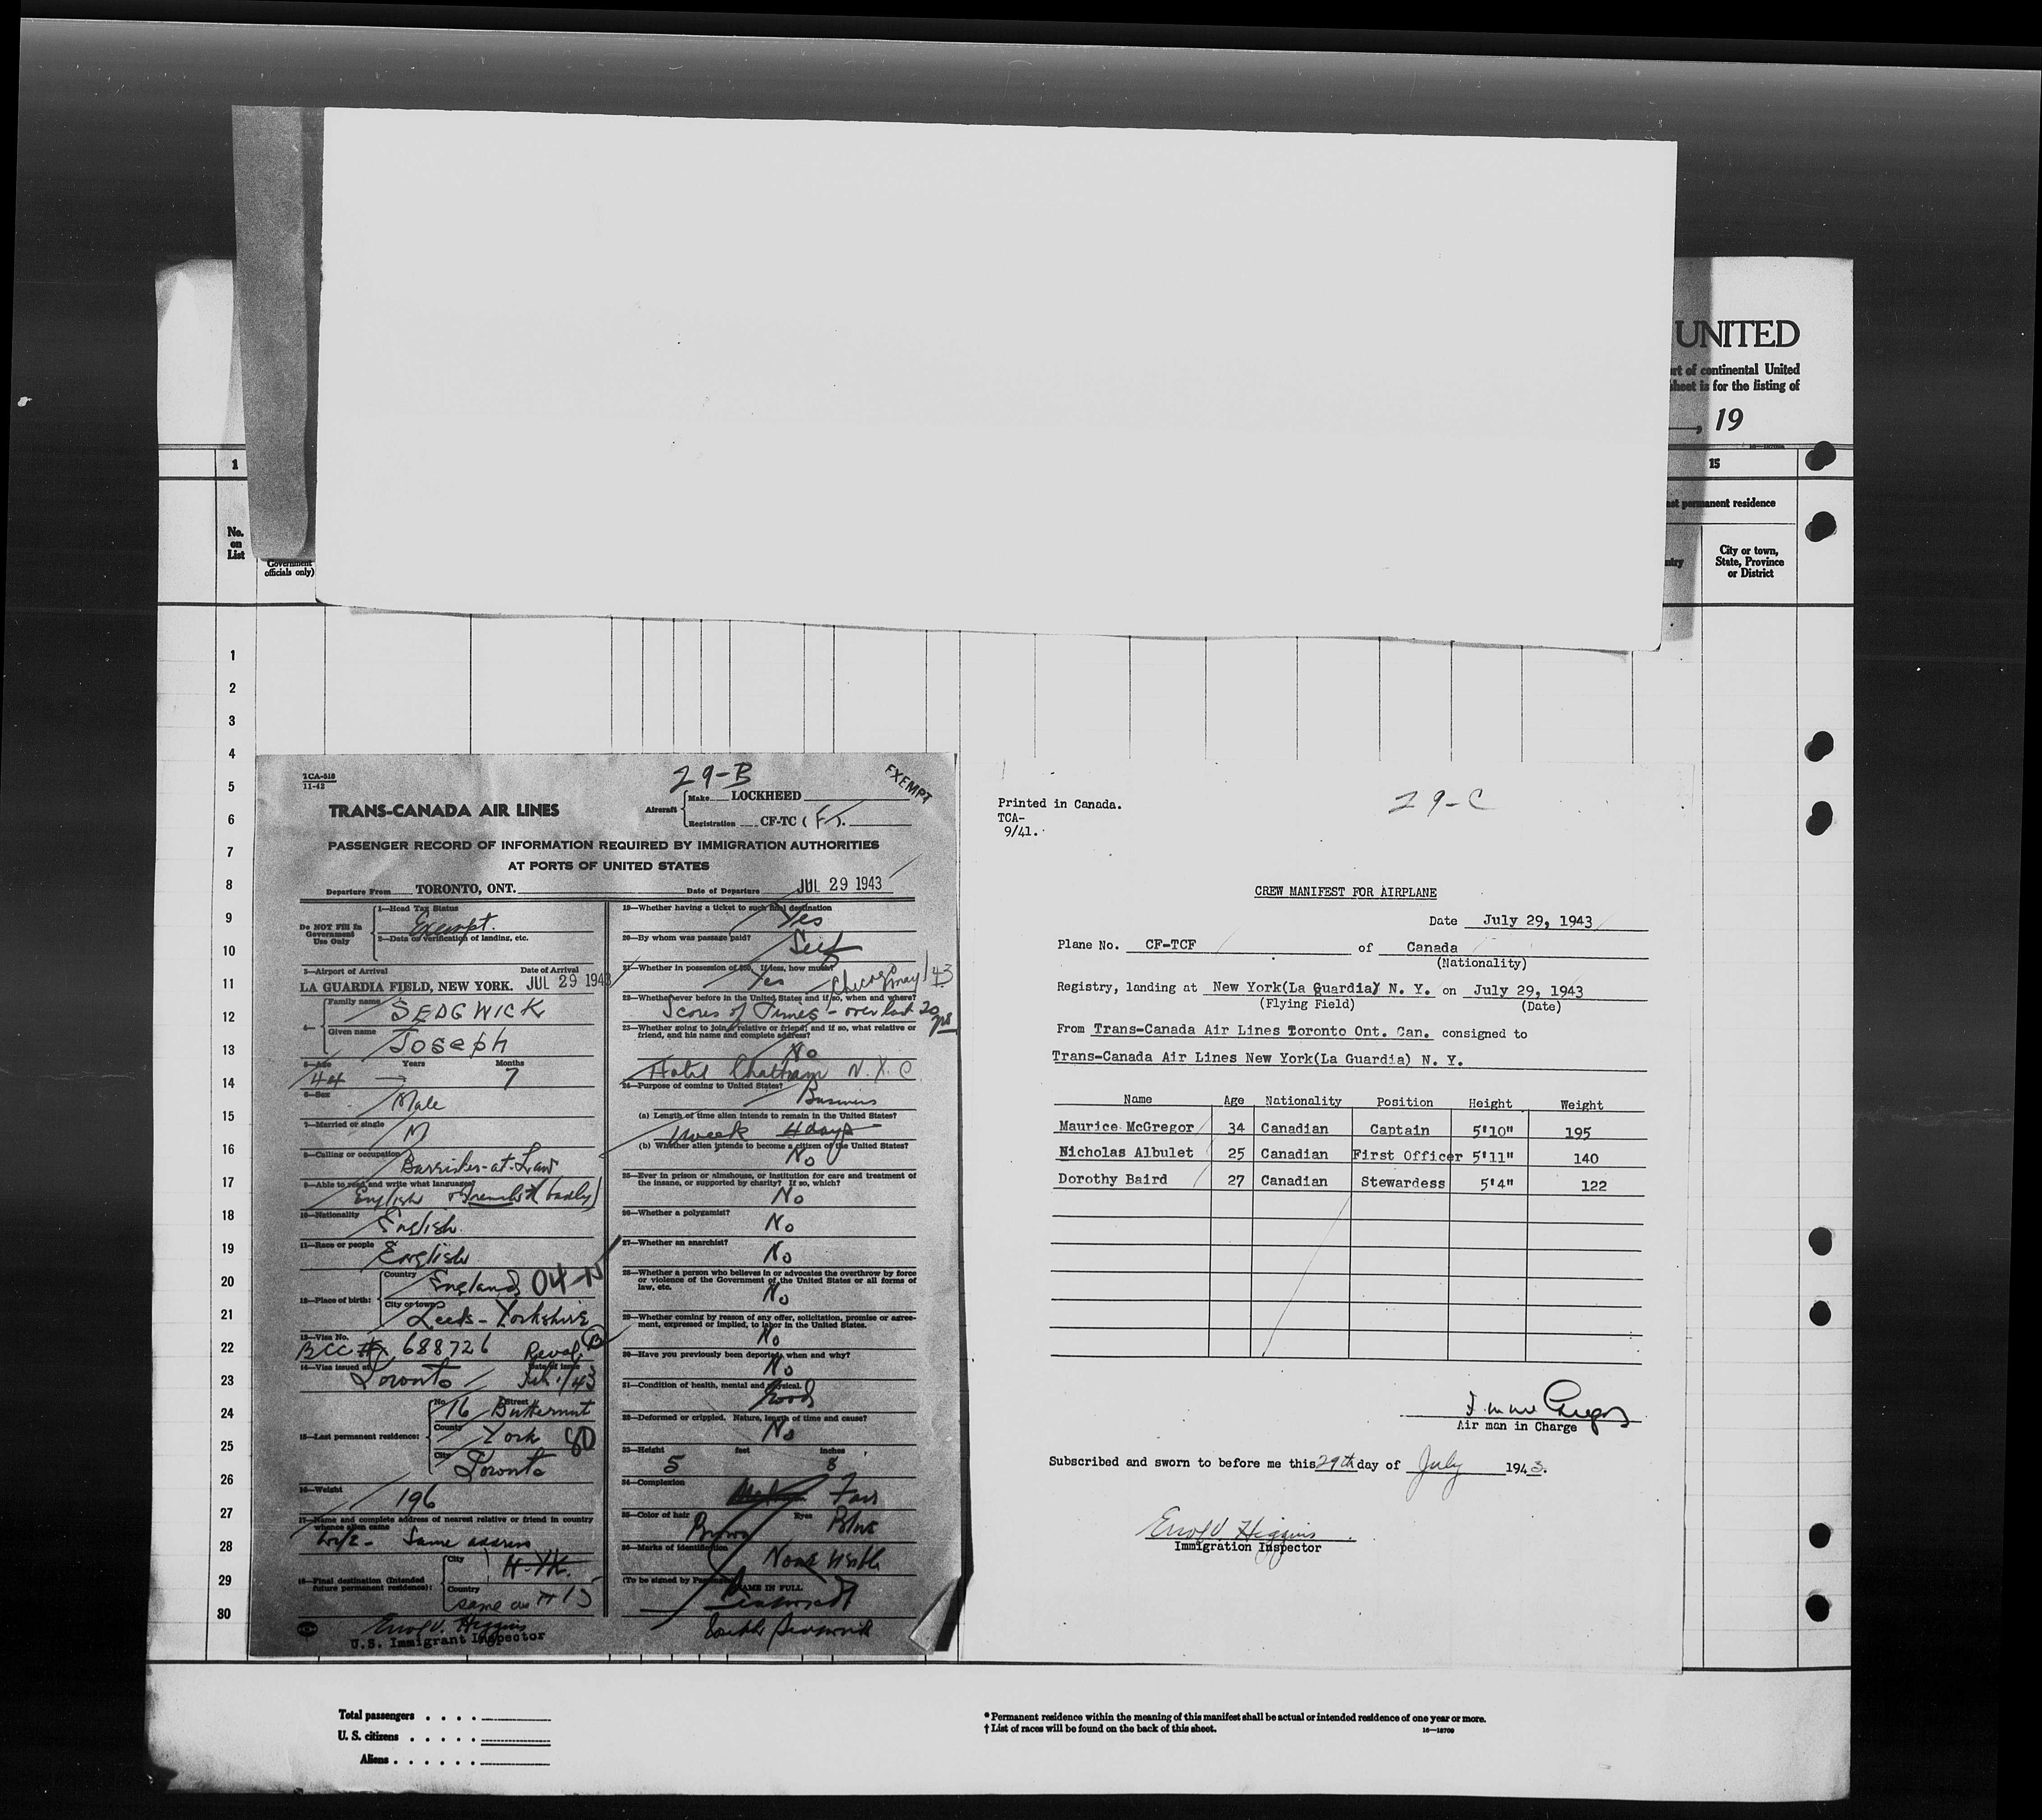 UNITED
rt of continental United
sheet is for the listing of
, 19
1
15
ast permanent residence
No.
on
List
Government
officials only)
ntry
City or town,
State, Province
or District
1
2
3
4
5
6
7
8
9
10
11
12
13
14
15
16
17
18
19
20
21
22
23
24
25
26
27
28
29
30
TCA-518
11-42
29-B
EXEMPT
TRANS-CANADA AIR LINES
Aircraft
Make LOCKHEED
Registration CF-TC (F).
PASSENGER RECORD OF INFORMATION REQUIRED BY IMMIGRATION AUTHORITIES
AT PORTS OF UNITED STATES
Departure From TORONTO, ONT. Date of Departure JUL 29 1943
Do NOT Fill In
Government
Use Only
1—Head Tax Status
Exempt.
2—Data or verification of landing, etc.
3—Airport of Arrival Date of Arrival
LA GUARDIA FIELD, NEW YORK. JUL 29 1943
4—
Family name
SEDGWICK
Given name
Joseph
5—Age Years Months
44 7
6—Sex
Male
7—Married or single
M
8—Calling or occupation
Barrister-at-Law
9—Able to read and write what languages?
English & French (badly)
10—Nationality
English
11—Race or people
English
12—Place of birth:
Country
England 04-N
City or town
Leeds - Yorkshire
13—Visa No.
BCC # 688726
14—Visa issued at Date of issue
Toronto
15—Last permanent residence:
No. Street
16 Butternut
County
York 80
City
Toronto
16—Weight
196
17—Name and complete address of nearest relative or friend in country
whence alien came
Wife - Same address
18—Final destination (Intended
future permanent residence):
City
N.YK.
Country
same as #15
Errol V. Higgins
U.S. Immigrant Inspector
19—Whether having a ticket to such final destination
Yes
20—By whom was passage paid?
Self
21—Whether in possession of $50. If less, how much?
Yes
Chicago May/43
22—Whether ever before in the United States and if so, when and where?
Scores of Times - over last 20 yrs
23—Whether going to join a relative or friend; and if so, what relative or
friend, and his name and complete address?
No
Hotel Chatham N.Y.C.
24—Purpose of coming to United States?
Business
(a) Length of time alien intends to remain in the United States?
1 week 4 days
(b) Whether alien intends to become a citizen of the United States?
No
25—Ever in prison or almshouse, or institution for care and treatment of
the insane, or supported by charity? If so, which?
No
26—Whether a polygamist?
No
27—Whether an anarchist?
No
28—Whether a person who believes in or advocates the overthrow by force
or violence of the Government of the United States or all forms of
law, etc.
No
29—Whether coming by reason of any offer, solicitation, promise or agree-
ment, expressed or implied, to labor in the United States.
No
30—Have you previously been deported, when and why?
No
31—Condition of health, mental and physical.
Good
32—Deformed or crippled. Nature, length of time and cause?
No
33—Height feet inches
5 8
34—Complexion
Fair
35—Color of hair Eyes
Brown Blue
36—Marks of identification
None visible
(To be signed by Passenger) NAME IN FULL
29-C
Printed in Canada.
TCA-
9/41.
CREW MANIFEST FOR AIRPLANE
Date July 29, 1943
Plane No. CF-TCF of Canada
(Nationality)
Registry, landing at New York(La Guardia) N. Y. on July 29, 1943
(Flying Field) (Date)
From Trans-Canada Air Lines Toronto Ont. Can. consigned to
Trans-Canada Air Lines New York(La Guardia) N. Y.
Name Age Nationality Position Height Weight
Maurice McGregor 34 Canadian Captain 5'10" 195
Nicholas Albulet 25 Canadian First Officer 5'11" 140
Dorothy Baird 27 Canadian Stewardess 5'4" 122
Air man in Charge
Subscribed and sworn to before me this 29th day of July 1943.
Errol V. Higgins
Immigration Inspector
Total passengers . . . .
U. S. citizens . . . . .
Aliens . . . . . .
* Permanent residence within the meaning of this manifest shall be actual or intended residence of one year or more.
† List of races will be found on the back of this sheet.
16—18709